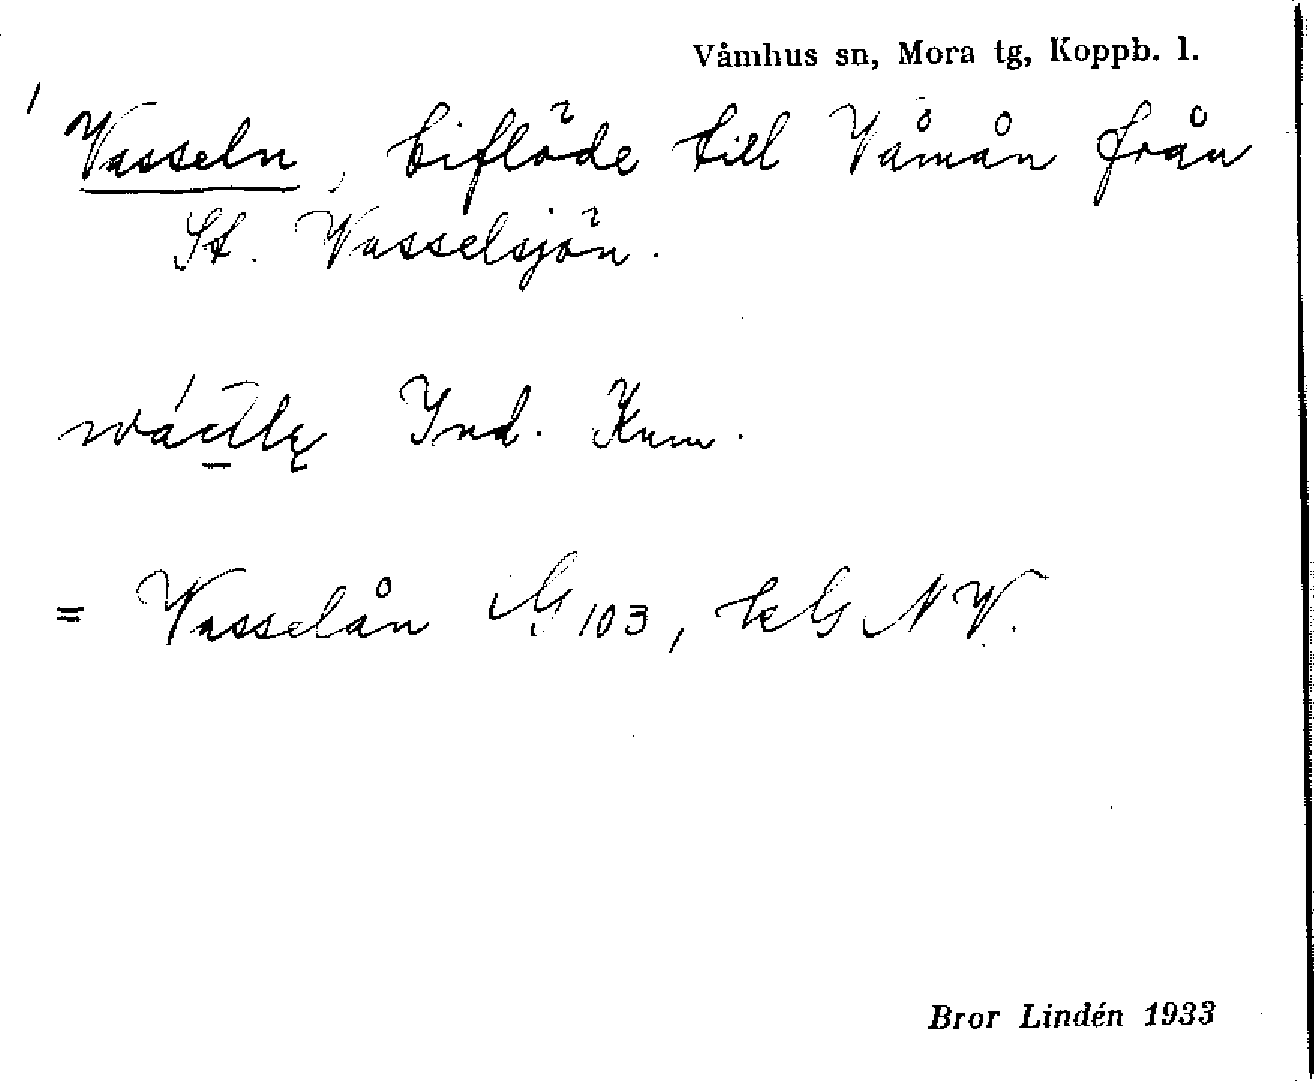 Våmhus sn, Mora tg, Koppb. l.
Vasseln, biflöde till Våmån från
St. Vasselsjön.
Ind. Kum.
= Vasselån 103, NV.
Bror Lindén 1933